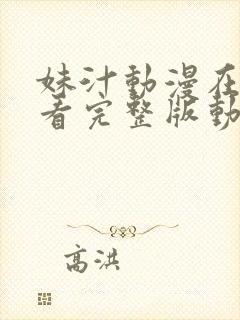 妹汁動漫在
看完整版動
高洪